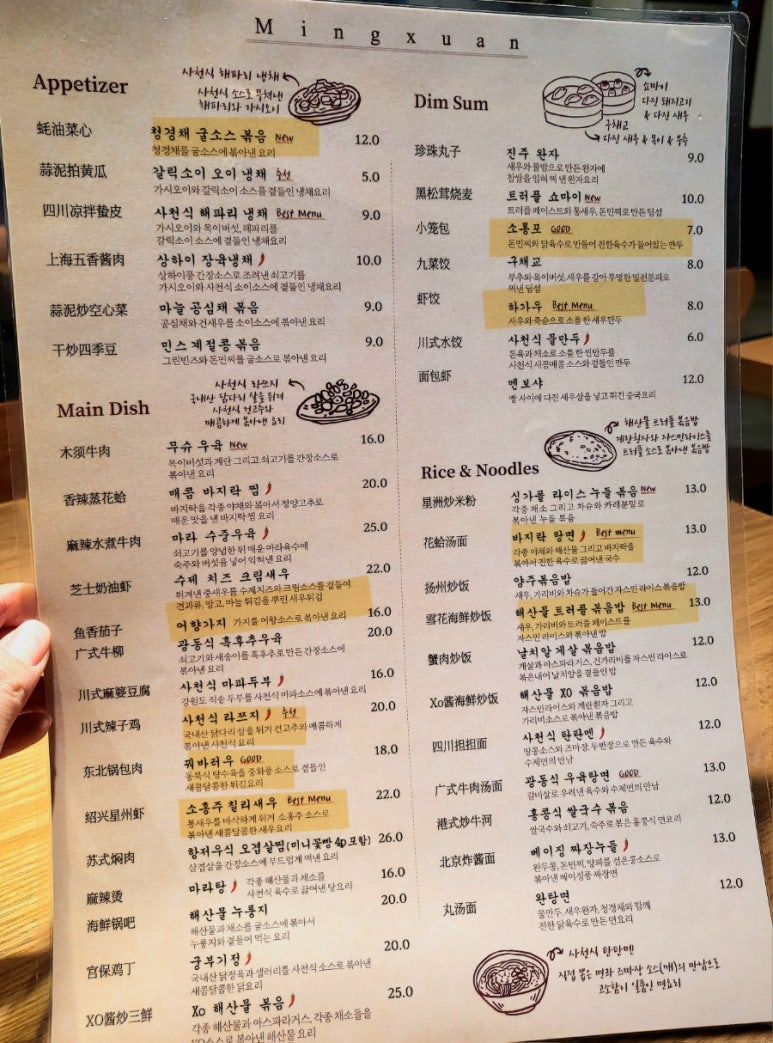 Mingxuan
Appetizer
사천식 해파리 냉채
사천식 소스로 무쳐낸
해파리와 가시오이
蚝油菜心 청경채 굴소스 볶음 New 12.0
청경채를 굴소스에 볶아낸 요리
蒜泥拍黄瓜 갈릭소이 오이 냉채 추천 5.0
가시오이와 갈릭소이 소스를 곁들인 냉채요리
四川凉拌蛰皮 사천식 해파리 냉채 Best Menu 9.0
가시오이와 목이버섯, 해파리를
갈릭소이 소스에 곁들인 냉채요리
上海五香酱肉 상하이 장육냉채 10.0
상하이풍 간장소스로 조려낸 쇠고기를
가시오이와 사천식 소이소스에 곁들인 냉채요리
蒜泥炒空心菜 마늘 공심채 볶음 9.0
공심채와 건새우를 소이소스에 볶아낸 요리
干炒四季豆 민스 계절콩 볶음 9.0
그린빈즈와 돈민찌를 굴소스로 볶아낸 요리
Main Dish
사천식 라쯔지
국내산 닭다리 살을 튀겨
사천식 건고추와
매콤하게 볶아낸 요리
木须牛肉 무슈 우육 New 16.0
목이버섯과 계란 그리고 쇠고기를 간장소스로
볶아낸 요리
香辣蒸花蛤 매콤 바지락 찜 20.0
바지락을 각종 야채와 볶아서 청양고추로
매운 맛을 낸 바지락 찜 요리
麻辣水煮牛肉 마라 수중우육 25.0
쇠고기를 양념한 뒤 매운 마라육수에
숙주와 버섯을 넣어 익혀낸 요리
芝士奶油虾 수제 치즈 크림새우 22.0
튀겨낸 중새우를 수제치즈와 크림소스를 곁들여
견과류, 망고, 마늘 튀김을 뿌린 새우튀김
鱼香茄子 어향가지 가지를 어향소스로 볶아낸 요리 16.0
广式牛柳 광동식 흑후추우육 20.0
쇠고기와 새송이를 흑후추로 만든 간장소스에
볶아낸 요리
川式麻婆豆腐 사천식 마파두부 16.0
강원도 직송 두부를 사천식 마파소스에 볶아낸 요리
川式辣子鸡 사천식 라쯔지 추천 20.0
국내산 닭다리 살을 튀겨 건고추와 매콤하게
볶아낸 사천식 요리
东北锅包肉 꿔바러우 GOOD 18.0
동북식 탕수육을 중화풍 소스로 곁들인
새콤달콤한 튀김요리
绍兴星州虾 소흥주 칠리새우 Best Menu 22.0
통새우를 바삭하게 튀겨 소흥주 소스로
볶아낸 새콤달콤한 새우요리
苏式焖肉 항저우식 오겹살찜(미니꽃빵 4P포함) 26.0
삼겹살을 간장소스에 부드럽게 쪄낸 요리
麻辣烫 마라탕 각종 해산물과 채소를 16.0
사천식 육수로 끓여낸 탕요리
海鲜锅吧 해산물 누룽지 20.0
해산물과 채소를 굴소스에 볶아서
누룽지와 곁들여 먹는 요리
宫保鸡丁 궁부기정 20.0
국내산 닭정육과 샐러리를 사천식 소스로 볶아낸
새콤달콤한 닭요리
XO酱炒三鲜 Xo 해산물 볶음 25.0
각종 해산물과 아스파라거스, 각종 채소들을
XO소스로 볶아낸 해산물 요리
Dim Sum
쇼마이
다진 돼지고기
& 다진 새우
구채교
다진 새우 & 목이 & 부추
珍珠丸子 진주 완자 9.0
새우와 물밤으로 만든 완자에
찹쌀을 입혀 쪄 낸 완자요리
黑松茸烧麦 트러플 쇼마이 New 10.0
트러플 페이스트와 통새우, 돈민찌로 만든 딤섬
小笼包 소롱포 GOOD 7.0
돈민찌와 닭육수로 만들어 진한육수가 들어있는 만두
九菜饺 구채교 8.0
부추와 목이버섯, 새우를 갈아 투명한 밀전분피로
쪄낸 딤섬
虾饺 하가우 Best Menu 8.0
새우와 죽순으로 소를 한 새우만두
川式水饺 사천식 물만두 6.0
돈육과 채소로 소를 한 찐만두를
사천식 새콤매콤 소스와 곁들인 만두
面包虾 멘보샤 12.0
빵 사이에 다진 새우살을 넣고 튀긴 중국요리
해산물 트러플 볶음밥
계란흰자와 자스민라이스를
트러플 소스로 볶아낸 볶음밥
Rice & Noodles
星洲炒米粉 싱가폴 라이스 누들 볶음 New 13.0
각종 채소 그리고 차슈와 카레분말로
볶아낸 누들 볶음
花蛤汤面 바지락 탕면 Best menu 13.0
각종 야채와 해산물 그리고 바지락을
볶아서 진한 육수로 끓여낸 국수
扬州炒饭 양주볶음밥 12.0
새우, 가리비와 차슈가 들어간 자스민 라이스 볶음밥
雪花海鲜炒饭 해산물 트러플 볶음밥 Best Menu 13.0
새우, 가리비와 트러플 페이스트를
자스민 라이스와 볶아낸 밥
蟹肉炒饭 날치알 게살 볶음밥 12.0
게살과 아스파라거스, 건가리비를 자스민 라이스로
볶은내어 날치알을 곁들인 밥
Xo酱海鲜炒饭 해산물 XO 볶음밥 12.0
자스민라이스와 계란흰자 그리고
가리비소스로 볶아낸 볶음밥
四川担担面 사천식 탄탄멘 12.0
땅콩소스와 즈마장, 두반장으로 만든 육수와
수제면의 만남
广式牛肉汤面 광동식 우육탕면 GOOD 13.0
갈비살로 우려낸 육수와 수제면의 만남
港式炒牛河 홍콩식 쌀국수 볶음 12.0
쌀국수와 쇠고기, 숙주로 볶은 홍콩식 면요리
北京炸酱面 베이징 짜장누들 13.0
완두콩, 돈민찌, 양파를 검은콩소스로
볶아낸 베이징풍 짜장면
丸汤面 완탕면 12.0
물만두, 새우완자, 청경채와 함께
진한 닭육수로 만든 면요리
사천식 탄탄멘
직접 뽑은 면과 즈마장 소스(깨)의 만남으로
고소함이 일품인 면요리